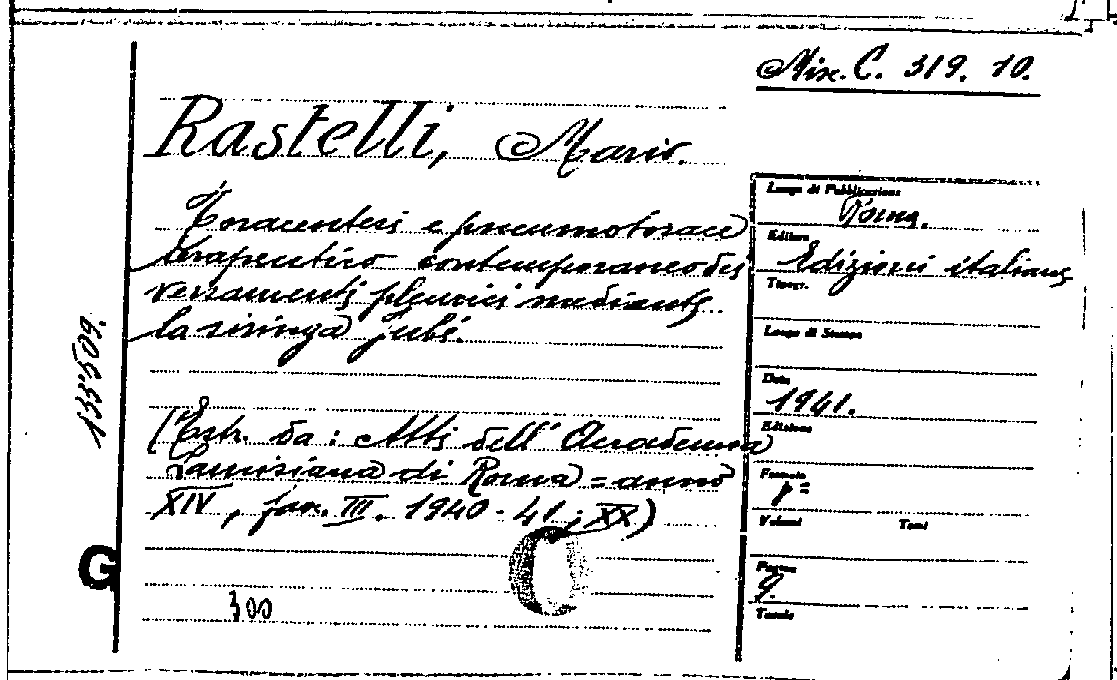 Misc. C. 319. 10.
Rastelli, Mario.
Toracentesi e pneumotorace
terapeutico contemporaneo dei
versamenti pleurici mediante
la siringa jubé.
(Estr. da: Atti dell' Accademia
Lancisiana di Roma = anno
XIV, fasc. III. 1940-41; XX)
300
133509.
G
Luogo di Pubblicazione
Roma.
Editore
Edizioni italiane
Tipogr.
Luogo di Stampa
Data
1941.
Edizione
Formato
Volumi Tomi
Pagine
9.
Tavole